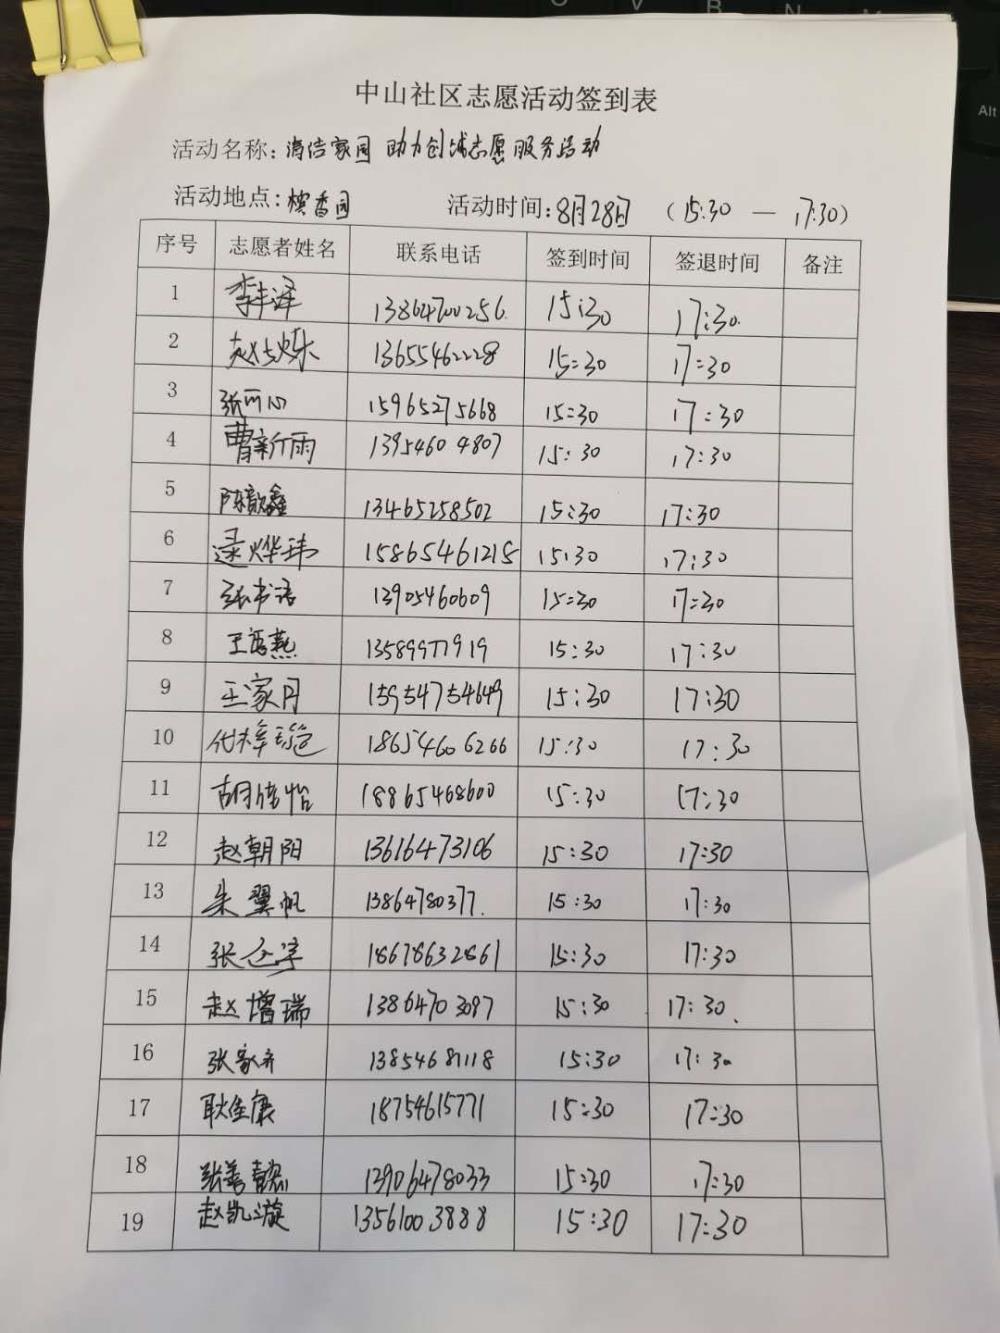 中山社区志愿活动签到表
活动名称: 清洁家园 助力创城志愿服务活动
活动地点: 槟香园 活动时间: 8月28日 (15:30 — 17:30)
序号 志愿者姓名 联系电话 签到时间 签退时间 备注
1 李丰泽 13864700256 15:30 17:30
2 13655462228 15:30 17:30
3 张可心 15965275668 15:30 17:30
4 曹新雨 13954604807 15:30 17:30
5 陈歆鑫 13465258502 15:30 17:30
6 逯烨玮 15865461218 15:30 17:30
7 张书语 13905460609 15:30 17:30
8 王语燕 13589977919 15:30 17:30
9 王家月 15954754649 15:30 17:30
10 18654606266 15:30 17:30
11 胡倍怡 18865468600 15:30 17:30
12 赵朝阳 13616473106 15:30 17:30
13 朱翼帆 13864780377 15:30 17:30
14 18678632861 15:30 17:30
15 赵增瑞 13864703097 15:30 17:30
16 张家齐 13854681118 15:30 17:30
17 耿佳康 18754615771 15:30 17:30
18 张善懿 13906478033 15:30 17:30
19 赵凯漩 13561003888 15:30 17:30